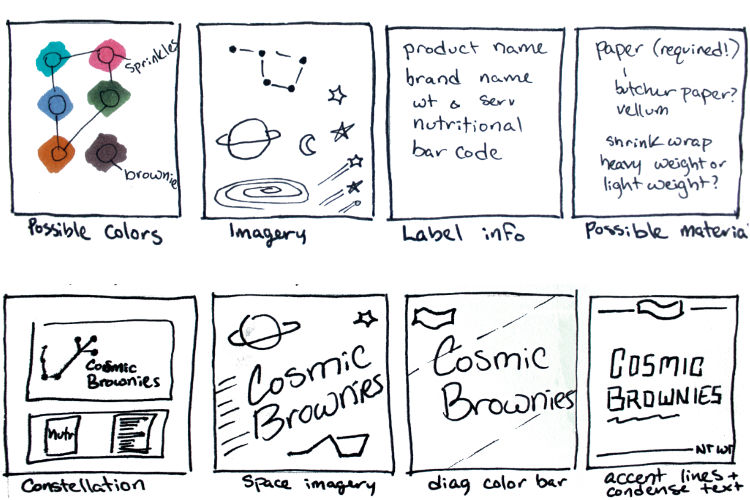 sprinkles
brownie
Possible Colors
Imagery
product name
brand name
wt & serv
nutritional
bar code
Label info
paper (required!)
butcher paper?
vellum
shrink wrap
heavy weight or
light weight?
Possible materia
Cosmic
Brownies
Nutr
Constellation
Cosmic
Brownies
Space imagery
Cosmic
Brownies
diag color bar
COSMIC
BROWNIES
NT WT
accent lines +
condense text